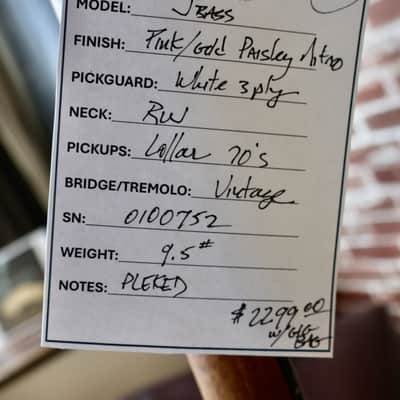 MODEL: J BASS
FINISH: Pink/Gold Paisley Nitro
PICKGUARD: White 3 ply
NECK: RW
PICKUPS: Lollar 70's
BRIDGE/TREMOLO: Vintage
SN: 0100752
WEIGHT: 9.5#
NOTES: PLEKED
$2299.00
w/GIG
BAG